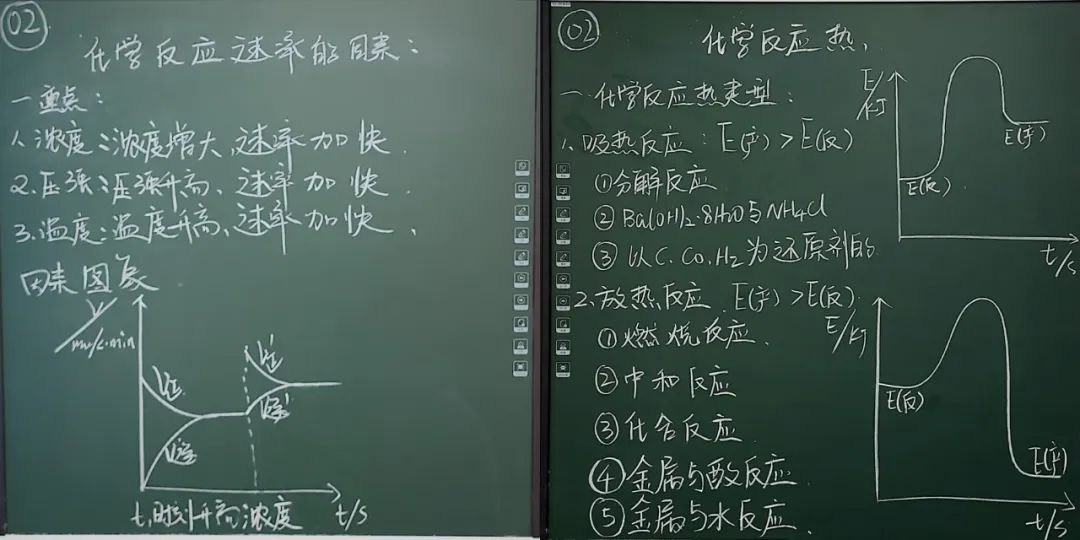 02
化学反应速率的因素:
一重点:
1.浓度:浓度增大、速率加快.
2.压强:压强升高、速率加快.
3.温度:温度升高、速率加快、
因素图象
V
/
min
V正
V逆
V正'
V逆'
t1时刻升高浓度
t/s
02
化学反应热、
一化学反应热类型:
1.吸热反应:E(产)>E(反)
①分解反应
②Ba(OH)2·8H2O与NH4Cl
③以C.CO.H2为还原剂的
2.放热反应.E(产)>E(反).
①燃烧反应.
②中和反应
③化合反应
④金属与酸反应
⑤金属与水反应、
E/kJ
E(反)
E(产)
t/s
E/kJ
E(反)
E(产)
t/s